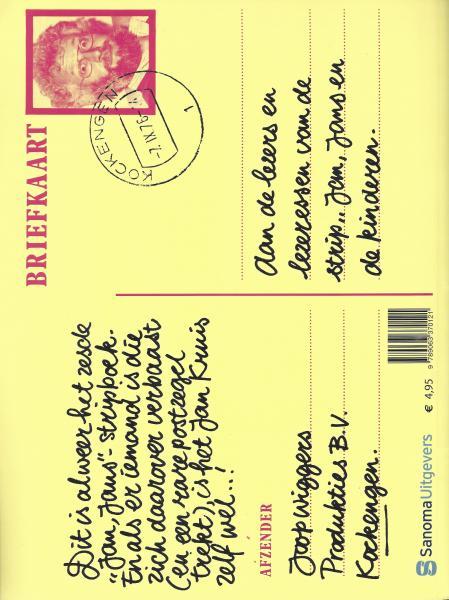 BRIEFKAART
KOCKENGEN
-7.IX.76-
1
KOCKENGEN
Dit is alweer het zesde
"Jan, Jans"-stripboek.
En als er iemand is die
zich daarover verbaast
(en een rare postzegel
trekt), is het Jan Kruis
zelf wel...!
Aan de lezers en
lezeressen van de
strip „Jan, Jans en
de kinderen.
AFZENDER
Joop Wiggers
Produkties B.V.
Kockengen.
SanomaUitgevers
€ 4,95
9 789063 370121